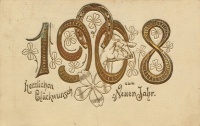 1908
Herzlichen
Glückwunsch
zum
Neuen Jahr.